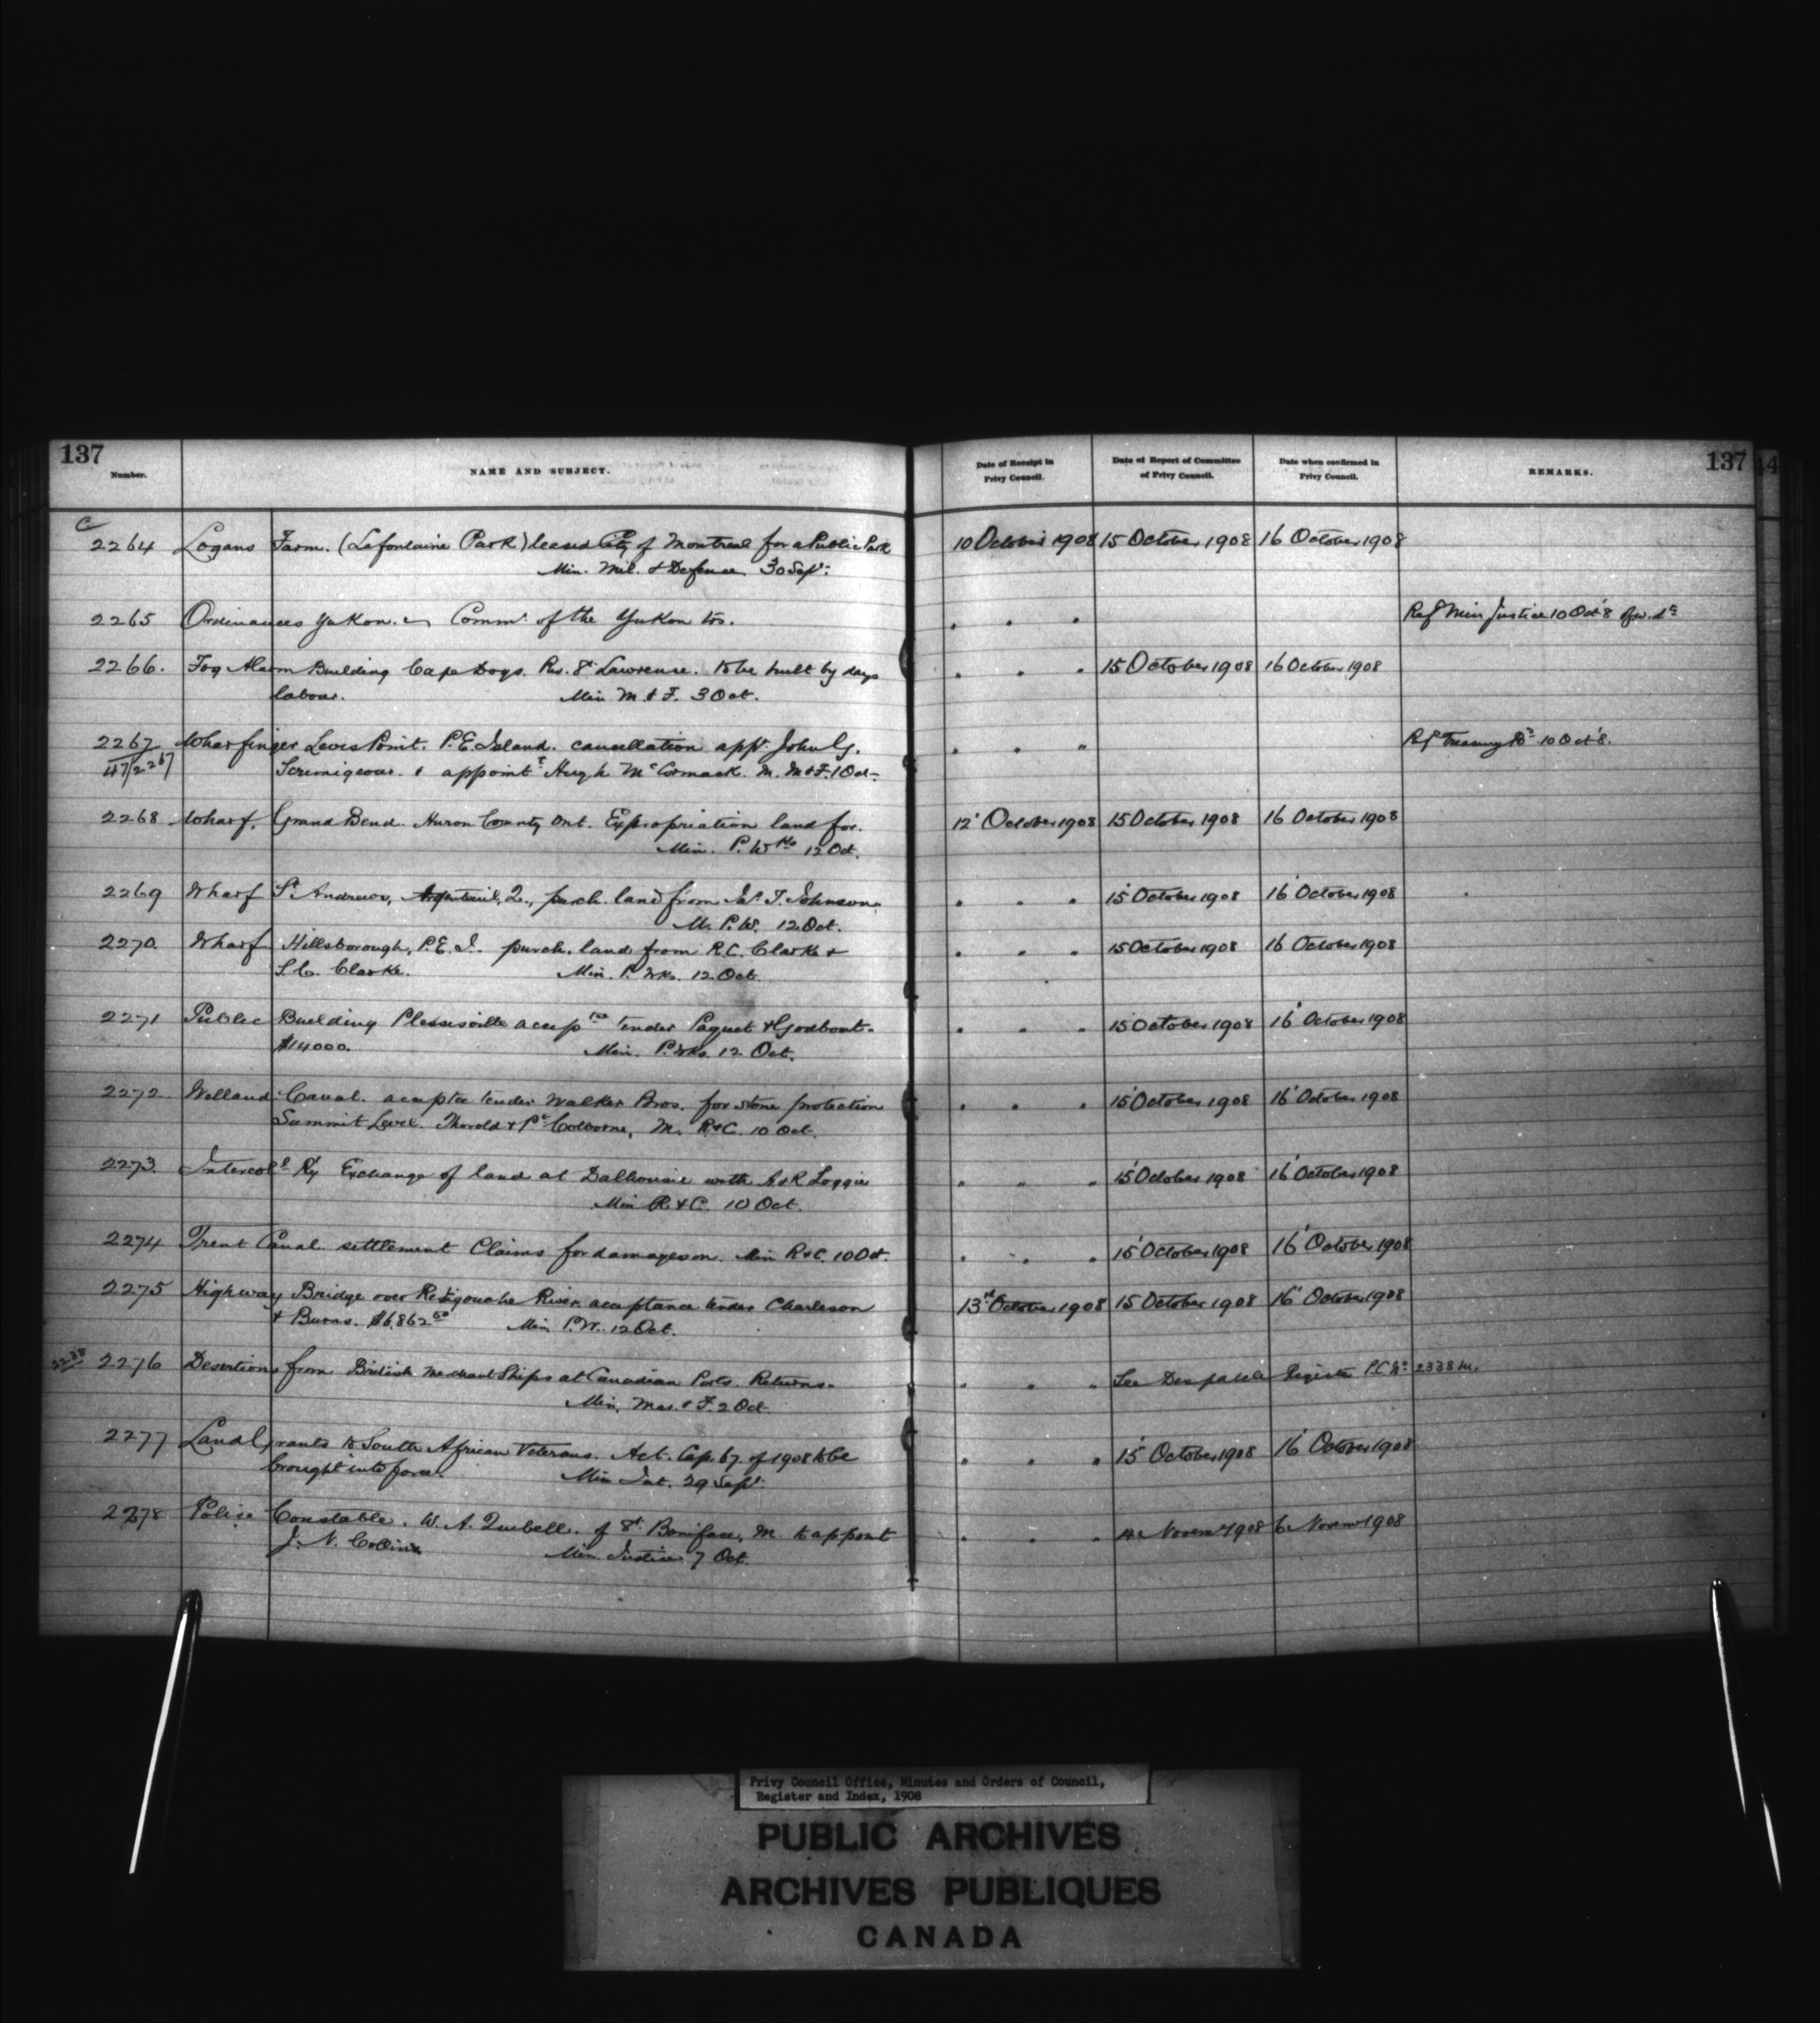 137
Number.
NAME AND SUBJECT.
Date of Receipt in Privy Council.
Date of Report of Committee of Privy Council.
Date when confirmed in Privy Council.
REMARKS.
137
44
C
2264 Logans Farm. (Lafontaine Park) leased City of Montreal for a Public Park 10 October 1908 15 October 1908 16 October 1908
Min. Mil. & Defence 30 Sept:
2265 Ordinances Yukon. Commr of the Yukon trs. " " " Ref Min Justice 10 Oct '8
2266. Fog Alarm Building Cape Dogs. Riv. St Lawrence. to be built by days " " " 15 October 1908 16 October 1908
labour. Min M. & F. 3 Oct.
2267 Wharfinger Lewis Point. P.E. Island. cancellation appt. John G. " " " Ref Treasury Bd 10 Oct '8.
47/2267 Scrimigeour. & appointt Hugh McCormack. M. M & F. 1 Oct.
2268 Wharf. Grand Bend. Huron County Ont. Expropriation land for. 12' October 1908 15 October 1908 16 October 1908
Min. P. Wks 12 Oct.
2269 Wharf St Andrews, Argenteuil, Q., purch. land from Js. T. Johnson. " " " 15 October 1908 16 October 1908
M. P.W. 12 Oct.
2270. Wharf Hillsborough, P.E.I. purch. land from R.C. Clarke & " " " 15 October 1908 16 October 1908
S.C. Clarke. Min. P. Wks. 12 Oct.
2271 Public Building Plessisville accep tce tender Paquet & Godbout. " " " 15 October 1908 16' October 1908
$14000. Min. P. Wks. 12 Oct.
2272 Welland Canal. acceptce tender Walker Bros. for stone protection " " " 15' October 1908 16' October 1908
Summit Level. Thorold & Pt Colborne, M. R & C. 10 Oct.
2273. Intercoll Ry Exchange of land at Dalhousie with A & R Loggie " " " 15' October 1908 16' October 1908
Min R. & C. 10 Oct.
2274 Trent Canal. settlement Claims for damages on. Min R & C. 10 Oct. " " " 15' October 1908 16' October 1908
2275 Highway Bridge over Restigouche River. acceptance tender Charleson 13 October 1908 15 October 1908 16' October 1908
& Burns. $6,862 50 Min P.W. 12 Oct.
2276 Desertions from British Merchant Ships at Canadian Ports. Returns. " " " See Despatch Register P.C. No 2338 M.
Min. Mar. & F. 2 Oct.
2277 Land Grants to South African Veterans. Act. Cap. 67. of 1908 to be " " " 15' October 1908 16' October 1908
brought into force. Min Int. 29 Sept.
2278 Police Constable. W. A. Quibell. of St. Boniface, M. to appoint " " " 4 Novem 1908 6 Novem 1908
J. N. Collins Min. Justice 7 Oct.
Privy Council Office, Minutes and Orders of Council,
Register and Index, 1908
PUBLIC ARCHIVES
ARCHIVES PUBLIQUES
CANADA